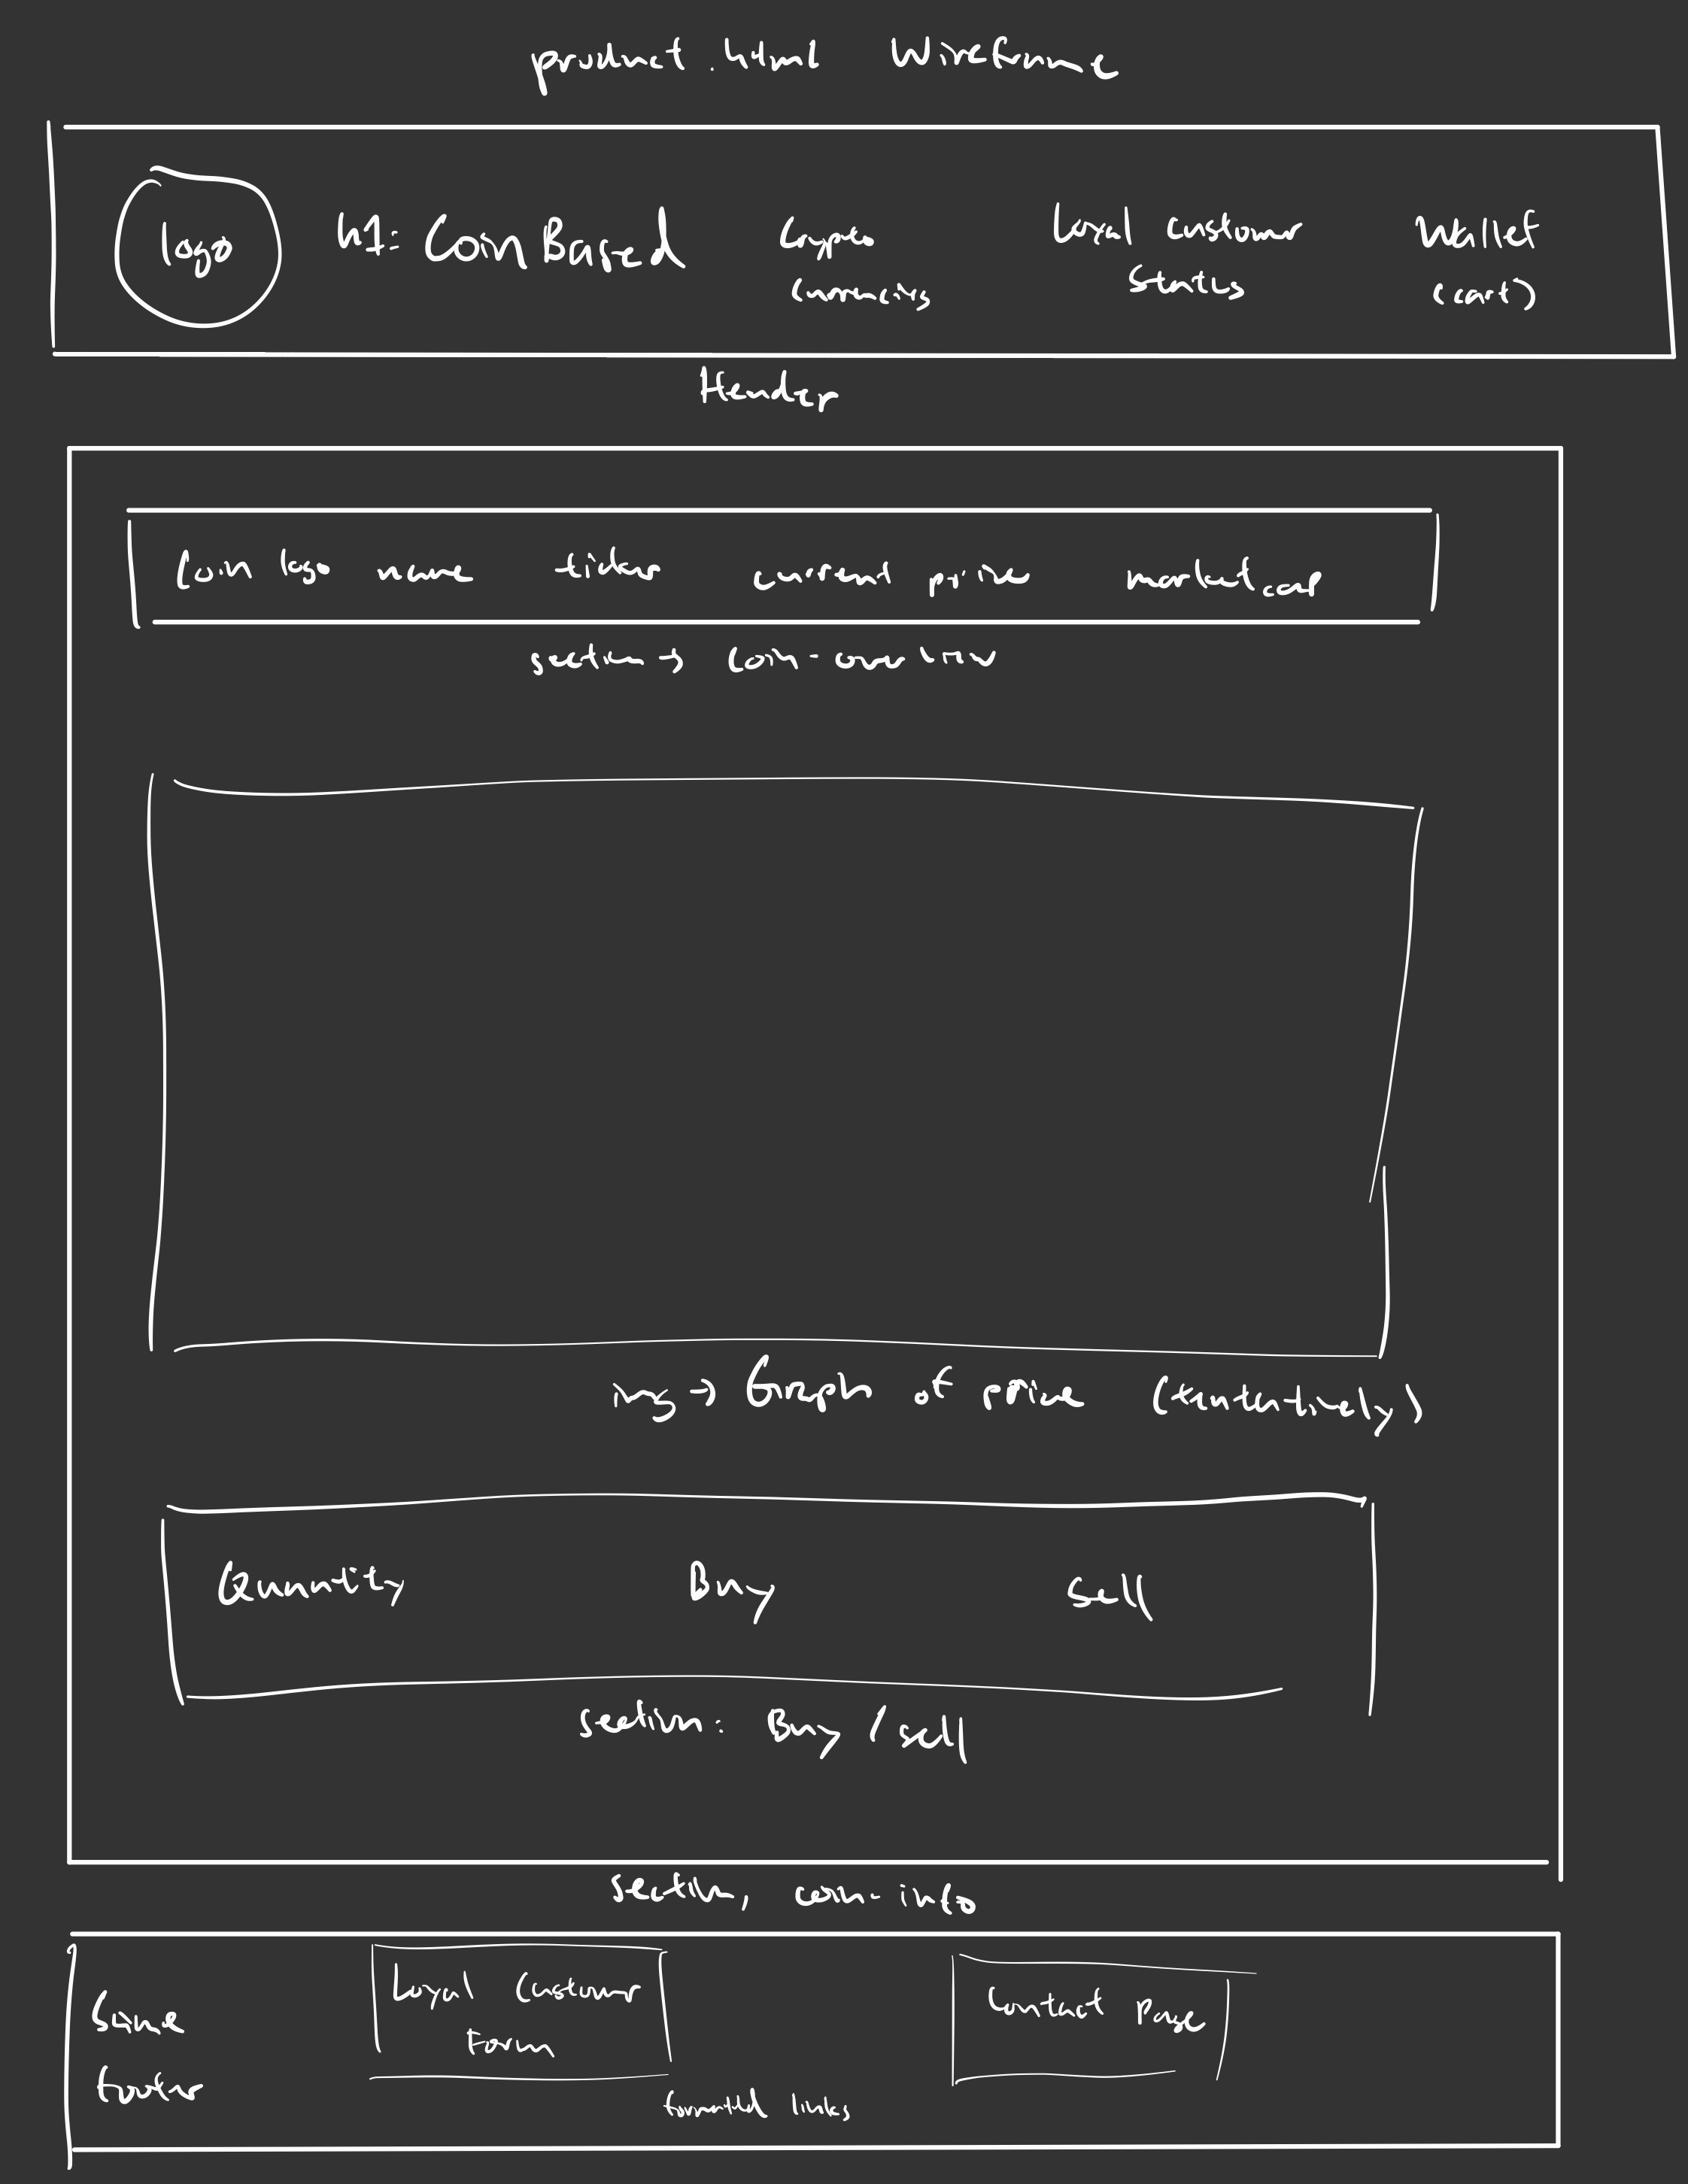 product.html Wireframe
Logo
H1: CoinBazaar
Crypto
Currencies
Loyal customer
Status
Wallet
(cart)
Header
Coin logo name ticker current price market cap
section → coin-overview
img → Graph of price (tentatively)
Quantity Buy Sell
Section: Buy/sell
Section, coin-info
Some
Footer
Loyal Customer
form
Contact Page
formful links